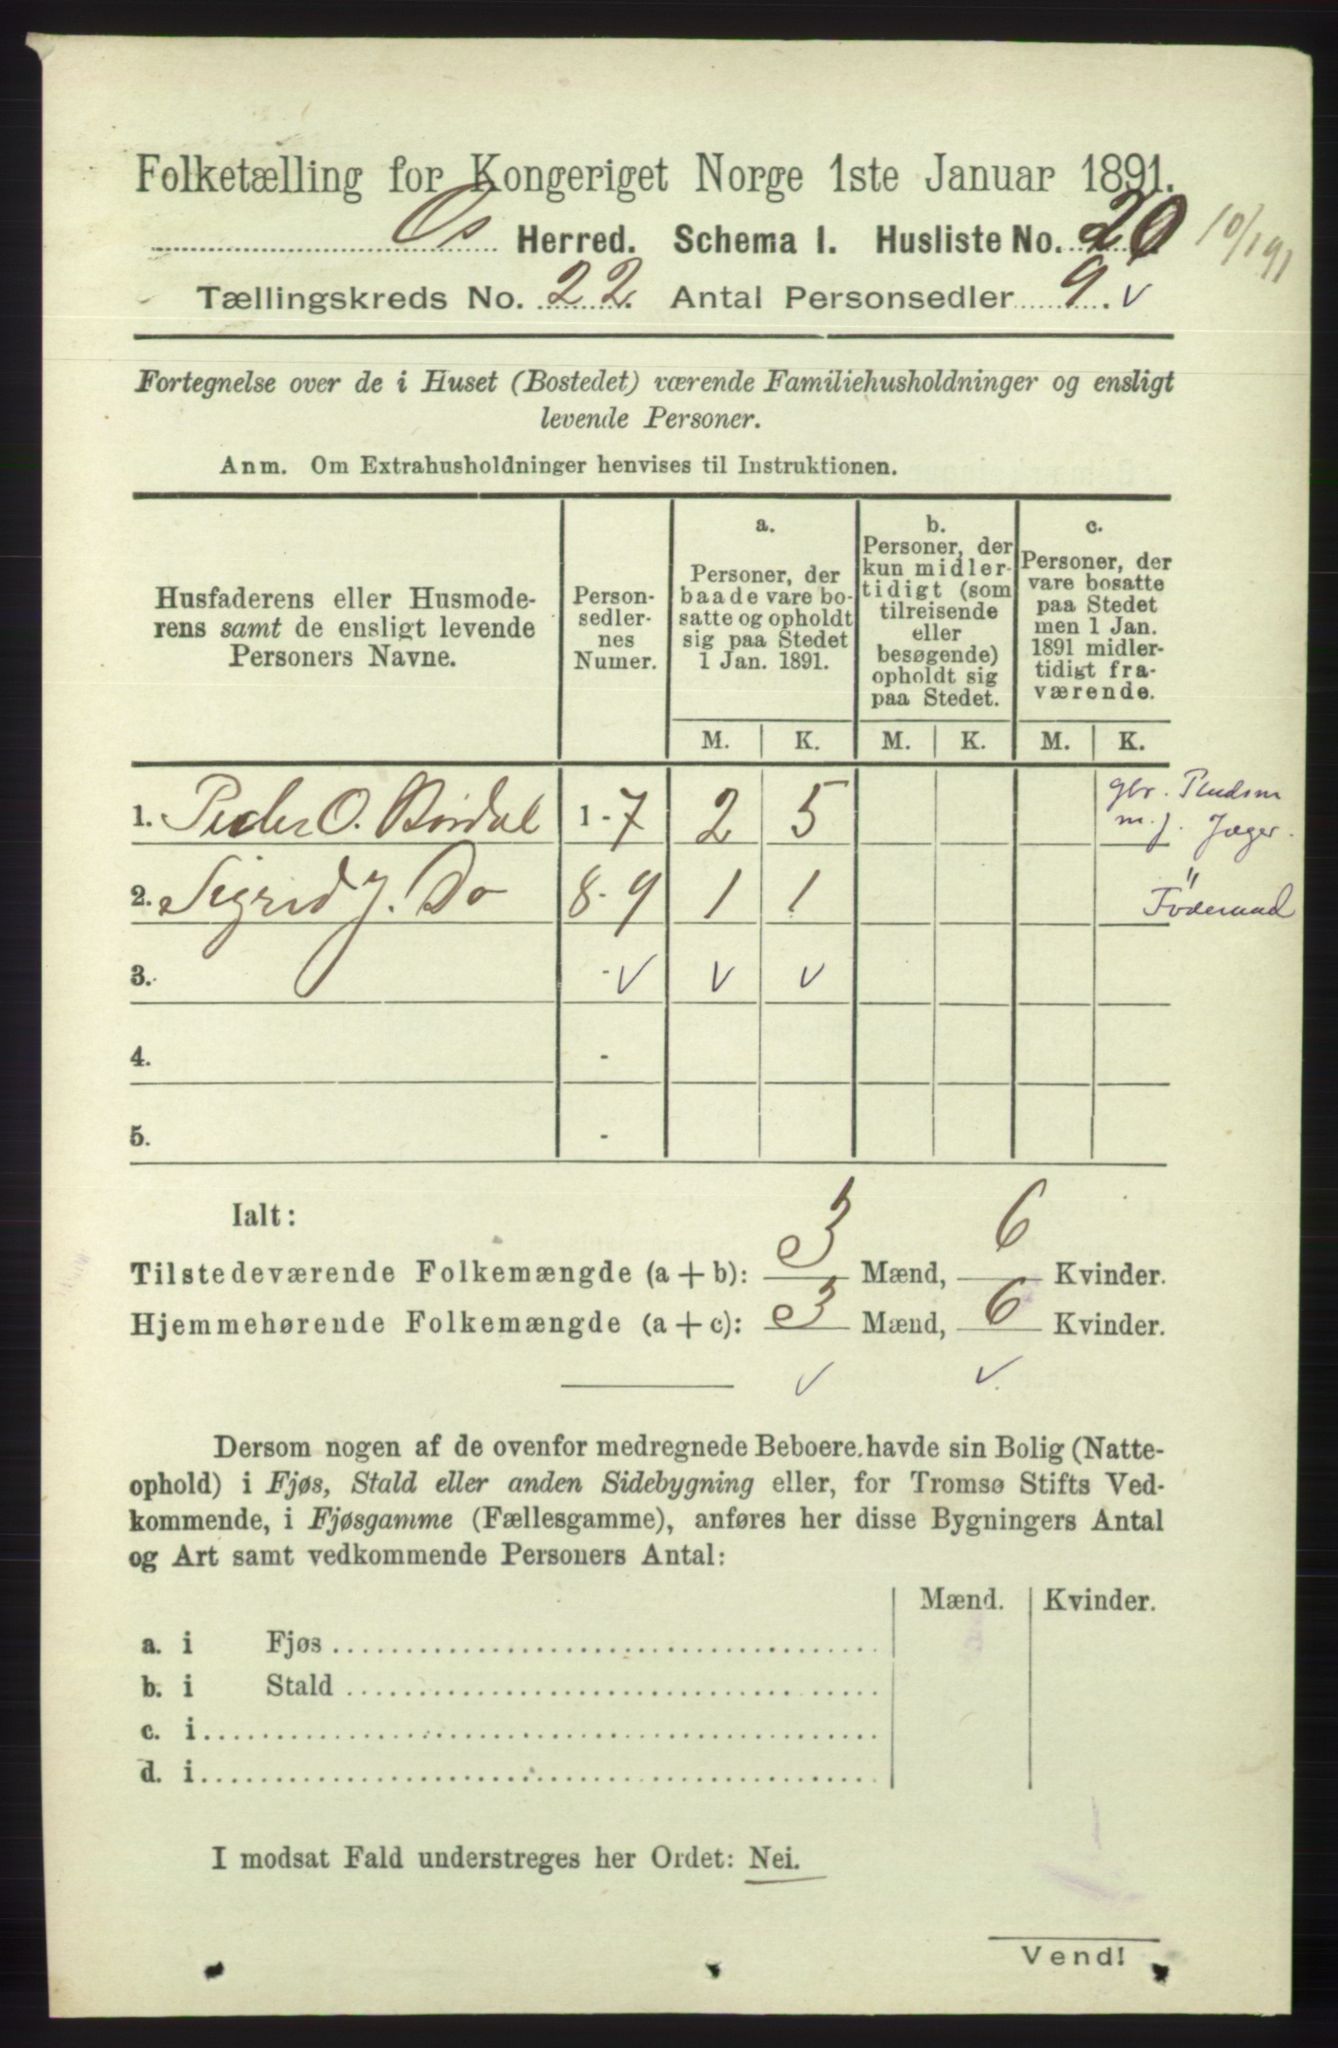 Folketælling for Kongeriget Norge 1ste Januar 1891.
Os Herred. Schema I. Husliste No. 20
10/1 91
Tællingskreds No. 22. Antal Personsedler 9. v
Fortegnelse over de i Huset (Bostedet) værende Familiehusholdninger og ensligt
levende Personer.
Anm. Om Extrahusholdninger henvises til Instruktionen.
Husfaderens eller Husmode-
rens samt de ensligt levende
Personers Navne.
Person-
sedler-
nes
Numer.
a.
Personer, der
baade vare bo-
satte og opholdt
sig paa Stedet
1 Jan. 1891.
b.
Personer, der
kun midler-
tidigt (som
tilreisende
eller
besøgende)
opholdt sig
paa Stedet.
c.
Personer, der
vare bosatte
paa Stedet
men 1 Jan.
1891 midler-
tidigt fra-
værende.
M. K. M. K. M. K.
1. Peder O. 1 - 7 2 5
gbr.
m. j. Jæger.
2. Sigrid J. Do 8 - 9 1 1 "
3. - v v v
4. -
5. -
Ialt:
Tilstedeværende Folkemængde (a + b): 3 Mænd, 6 Kvinder.
Hjemmehørende Folkemængde (a + c): 3 Mænd, 6 Kvinder.
v v
Dersom nogen af de ovenfor medregnede Beboere havde sin Bolig (Natte-
ophold) i Fjøs, Stald eller anden Sidebygning eller, for Tromsø Stifts Ved-
kommende, i Fjøsgamme (Fællesgamme), anføres her disse Bygningers Antal
og Art samt vedkommende Personers Antal:
Mænd. Kvinder.
a. i Fjøs
b. i Stald
c. i
d. i
I modsat Fald understreges her Ordet: Nei.
Vend!